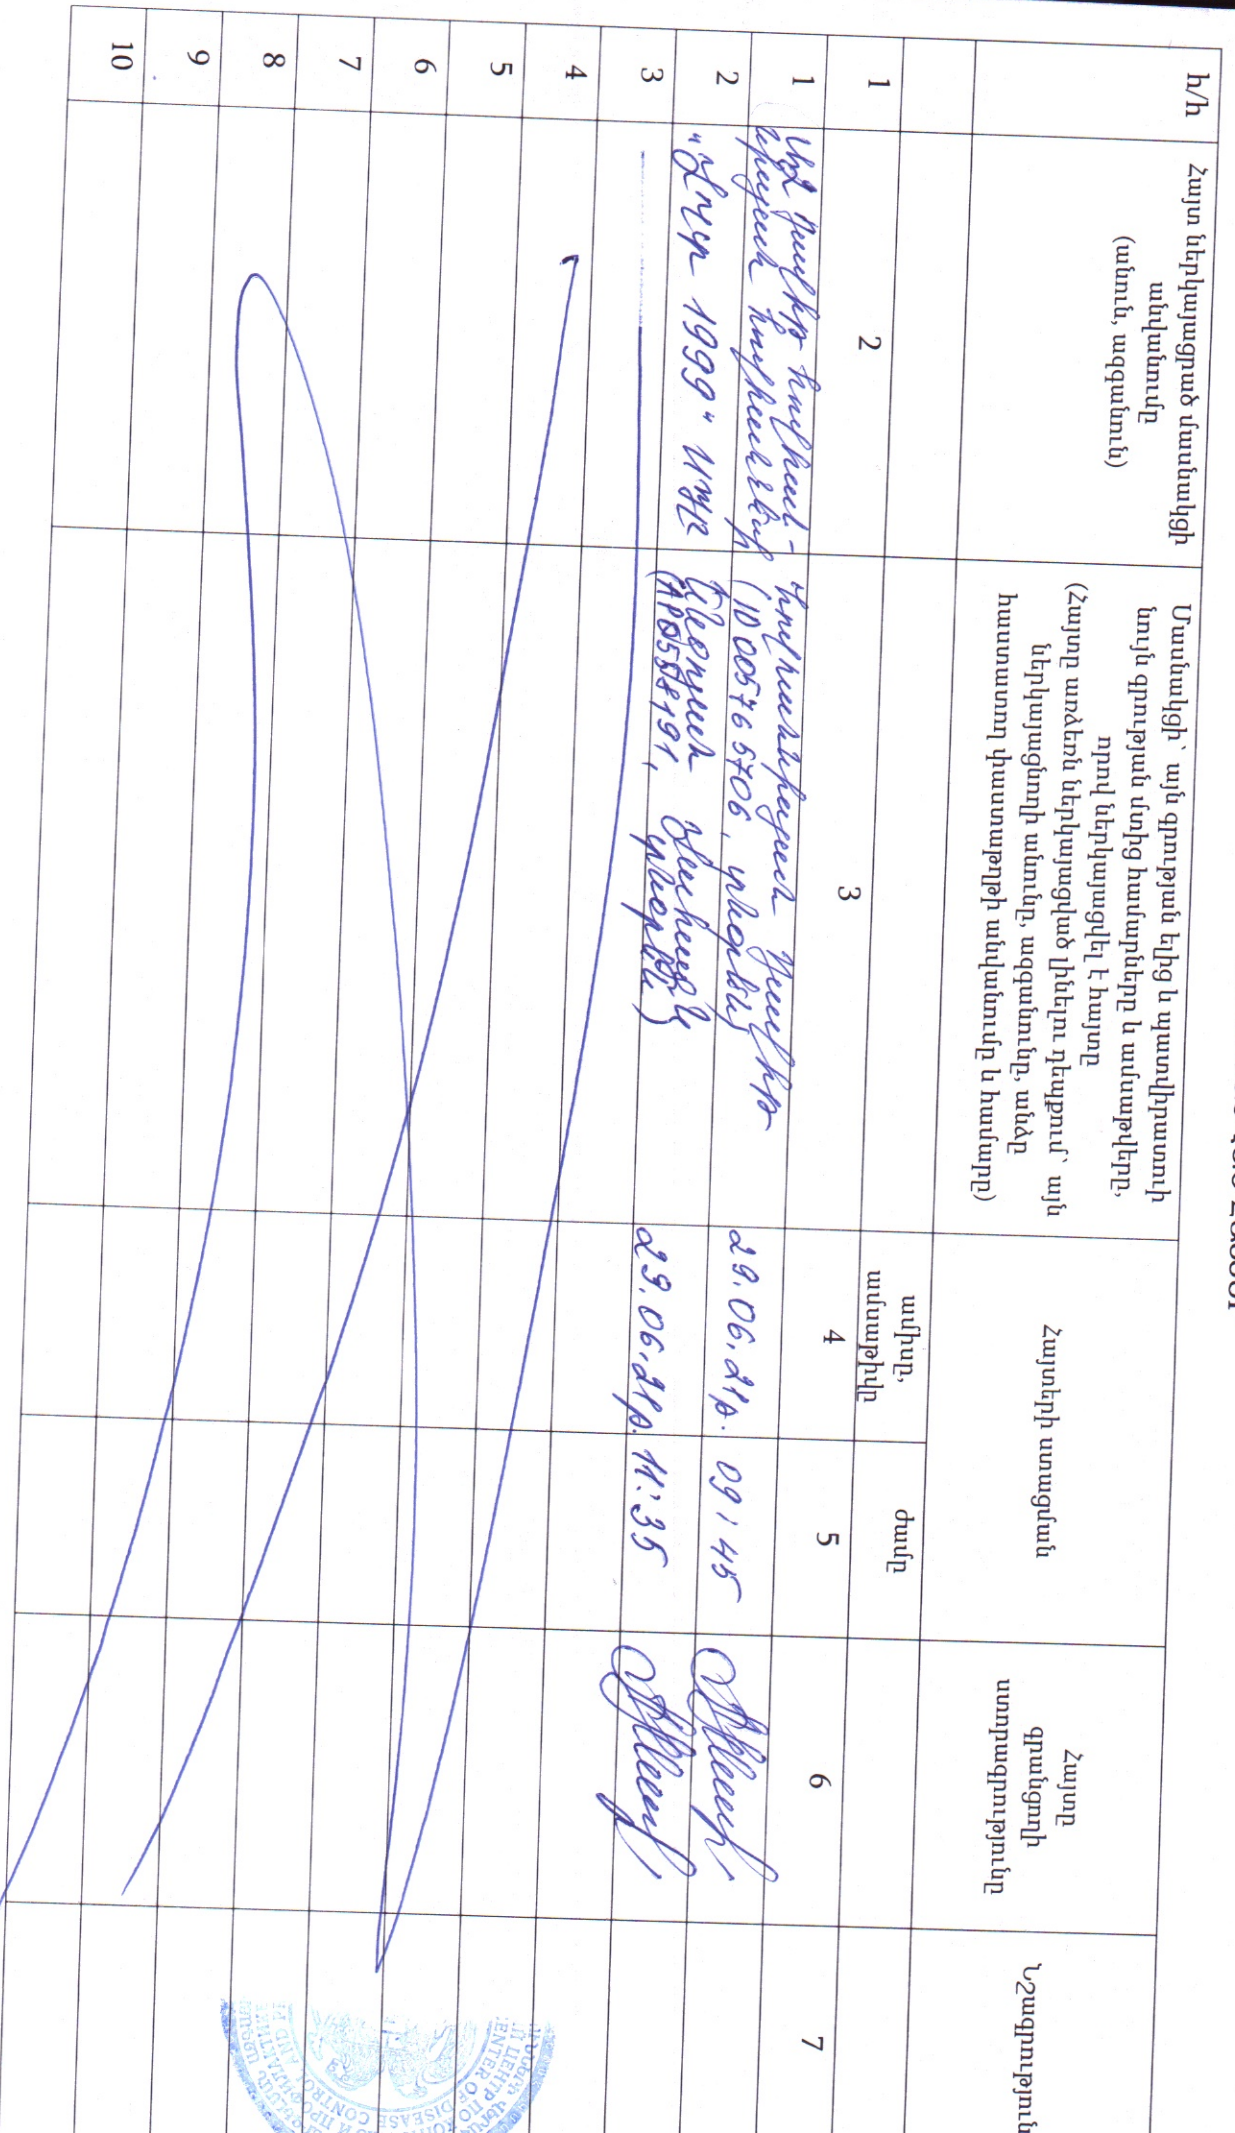 հ/հ
Հայտ ներկայացրած մասնակցի
անվանումը
(անուն, ազգանուն)
Մասնակցի՝ այն գրության ելից և պատվիրատուի
նույն գրության մտից համարները և ամսաթվերը,
որով ներկայացվել է հայտը
(Հայտը առձեռն ներկայացված լինելու դեպքում՝ այն
ներկայացնողի անունը, ազգանունը, անձը
հաստատող փաստաթղթի անվանումը և համարը)
Հայտերի ստացման
ամիսը,
ամսաթիվը
ժամը
Հայտը
գրանցողի
ստորագրությունը
Նշագրություն
1
2
3
4
5
6
7
1
ԱՁ Դավիթ Հովհան-
նիսյան Հովհաննեսի
Հովհաննիսյան Դավիթ
(ID 005765706, տնօրեն)
29.06.21թ.
09:45
2
1999" ՍՊԸ
(AP0558191, տնօրեն)
29.06.21թ.
11:35
3
4
5
6
7
8
9
10
ЦЕНТР ПО
CENTER OF DISEASE CONTROL AND